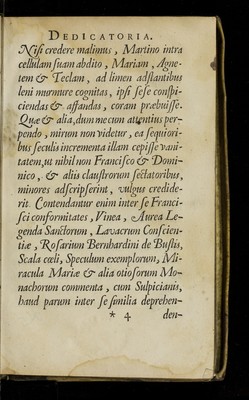 DEDICATORIA.
Nisi credere malimus, Martino intra
cellulam suam abdito, Mariam, Agne-
tem & Teclam, ad limen adstantibus
leni murmure cognitas, ipsi sese conspi-
ciendas & affandas, coram præbuisse.
Quæ & alia, dum mecum attentius per-
pendo, mirum non videtur, ea sequiori-
bus seculis incrementa illam cepisse vani-
tatem, ut nihil non Francisco & Domi-
nico, & aliis claustrorum sectatoribus,
minores adscripserint, vulgus credide-
rit. Contendantur enim inter se Franci-
sci conformitates, Vinea, Aurea Le-
genda Sanctorum, Lavacrum Conscien-
tiæ, Rosarium Bernhardini de Bustis,
Scala cœli, Speculum exemplorum, Mi-
racula Mariæ & alia otiosorum Mo-
nachorum commenta, cum Sulpicianis,
haud parum inter se similia deprehen-
* 4 den-